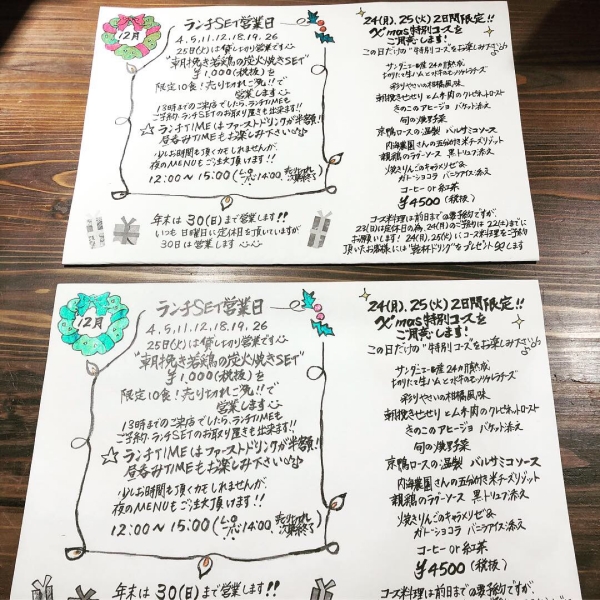 12月
ランチSET営業日
4,5,11,12,18,19,26
25日(火)は貸し切り営業です
"朝挽き若鶏の炭火焼きSET"
¥1,000(税抜)を
限定10食!売り切れご免!!で
営業します
13時までのご来店でしたら、ランチTIMEも
ご予約、ランチSETのお取り置きも出来ます!!
☆ランチTIMEはファーストドリンクが半額!!
昼呑みTIMEもお楽しみ下さい♪
少しお時間を頂くかもしれませんが、
夜のMENUもご注文頂けます!!
12:00〜15:00(L.O 14:00、売り切れ次第終了)
年末は30(日)まで営業します!!
いつも日曜日に定休日を頂いていますが
30日は営業します
24(月),25(火)2日間限定!!
X'mas特別コースを
ご用意します!
この日だけの"特別コース"をお楽しみ下さい♪
サンダニエーレ産24カ月熟成
切りたて生ハムと水牛のモッツァレラチーズ
彩りやさいの柑橘風味
朝挽きせせりとムネ肉のクレピネットロースト
きのこのアヒージョ バケット添え
旬の焼野菜
京鴨ロースの温製 バルサミコソース
内海農園さんの五分づき米チーズリゾット
親鶏のラグーソース 黒トリュフ添え
焼きりんごのキャラメリゼ&
ガトーショコラ バニラアイス添え
コーヒー or 紅茶
¥4500(税抜)
コース料理は前日までの要予約ですが、
23(日)は定休日の為、24(月)のご予約は22(土)までに
お願いします!24(月),25(火)にコース料理をご予約
頂いたお客様には"乾杯ドリンク"をプレゼント致します
12月
ランチSET営業日
4,5,11,12,18,19,26
25日(火)は貸し切り営業です
"朝挽き若鶏の炭火焼きSET"
¥1,000(税抜)を
限定10食!売り切れご免!!で
営業します
13時までのご来店でしたら、ランチTIMEも
ご予約、ランチSETのお取り置きも出来ます!!
☆ランチTIMEはファーストドリンクが半額!!
昼呑みTIMEもお楽しみ下さい♪
少しお時間を頂くかもしれませんが、
夜のMENUもご注文頂けます!!
12:00〜15:00(L.O 14:00、売り切れ次第終了)
年末は30(日)まで営業します!!
24(月),25(火)2日間限定!!
X'mas特別コースを
ご用意します!
この日だけの"特別コース"をお楽しみ下さい♪
サンダニエーレ産24カ月熟成
切りたて生ハムと水牛のモッツァレラチーズ
彩りやさいの柑橘風味
朝挽きせせりとムネ肉のクレピネットロースト
きのこのアヒージョ バケット添え
旬の焼野菜
京鴨ロースの温製 バルサミコソース
内海農園さんの五分づき米チーズリゾット
親鶏のラグーソース 黒トリュフ添え
焼きりんごのキャラメリゼ&
ガトーショコラ バニラアイス添え
コーヒー or 紅茶
¥4500(税抜)
コース料理は前日までの要予約ですが、